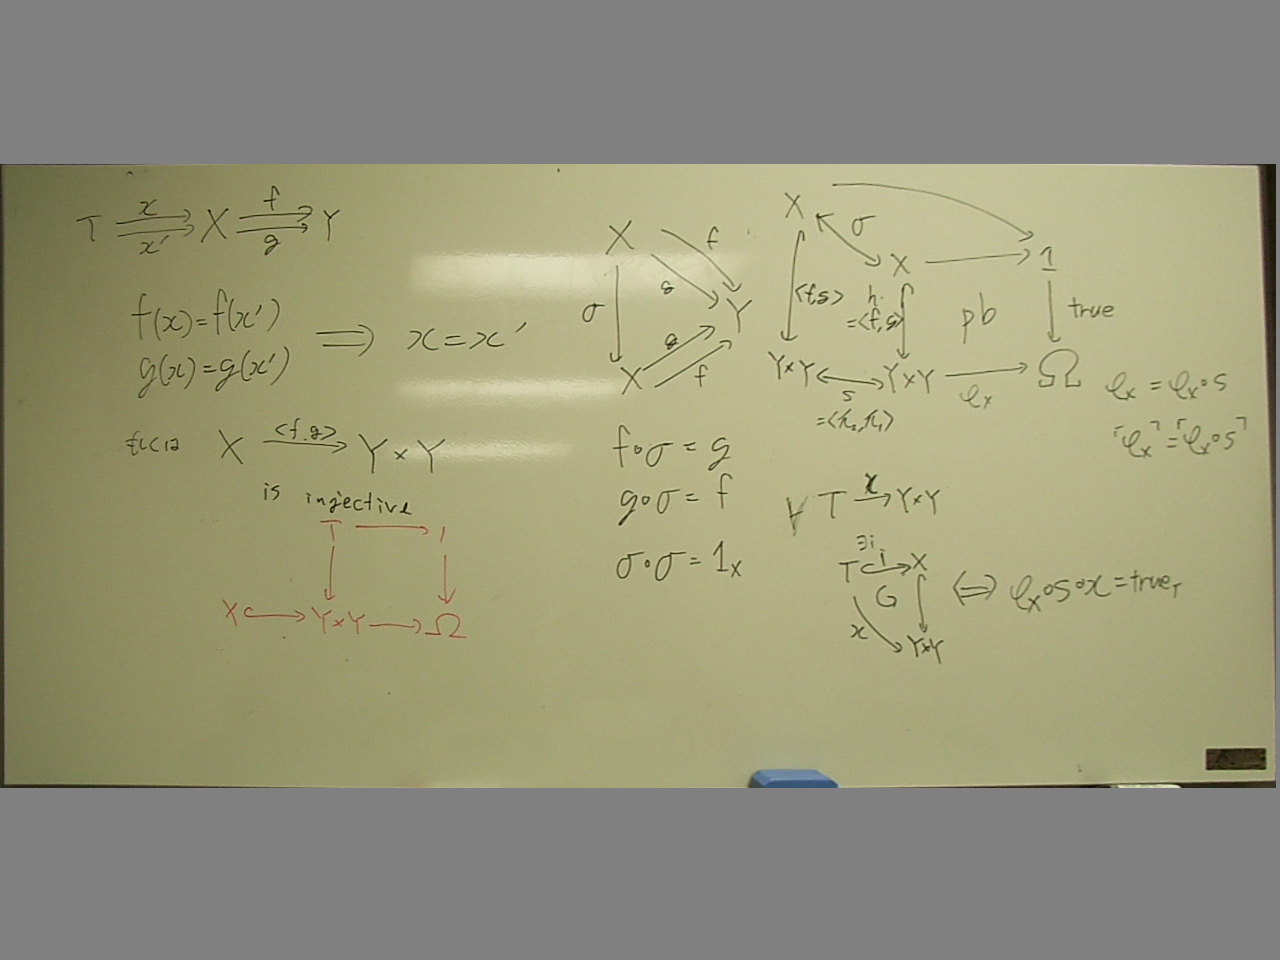 T x x' X f g Y
f(x)=f(x')
g(x)=g(x') ⟹ x=x'
X <f,g> Y×Y
is injective
T 1
X Y×Y Ω
X f
g
σ Y
g
X f
f∘σ=g
g∘σ=f
σ∘σ=1x
X σ X 1
<f,g> h =<f,g> pb true
Y×Y s Y×Y φx Ω
φx=φx∘s
⌜φx⌝=⌜φx∘s⌝
∀ T x→ Y×Y
∃i
T i X
x Y×Y
⟺ φx∘s∘x=trueT